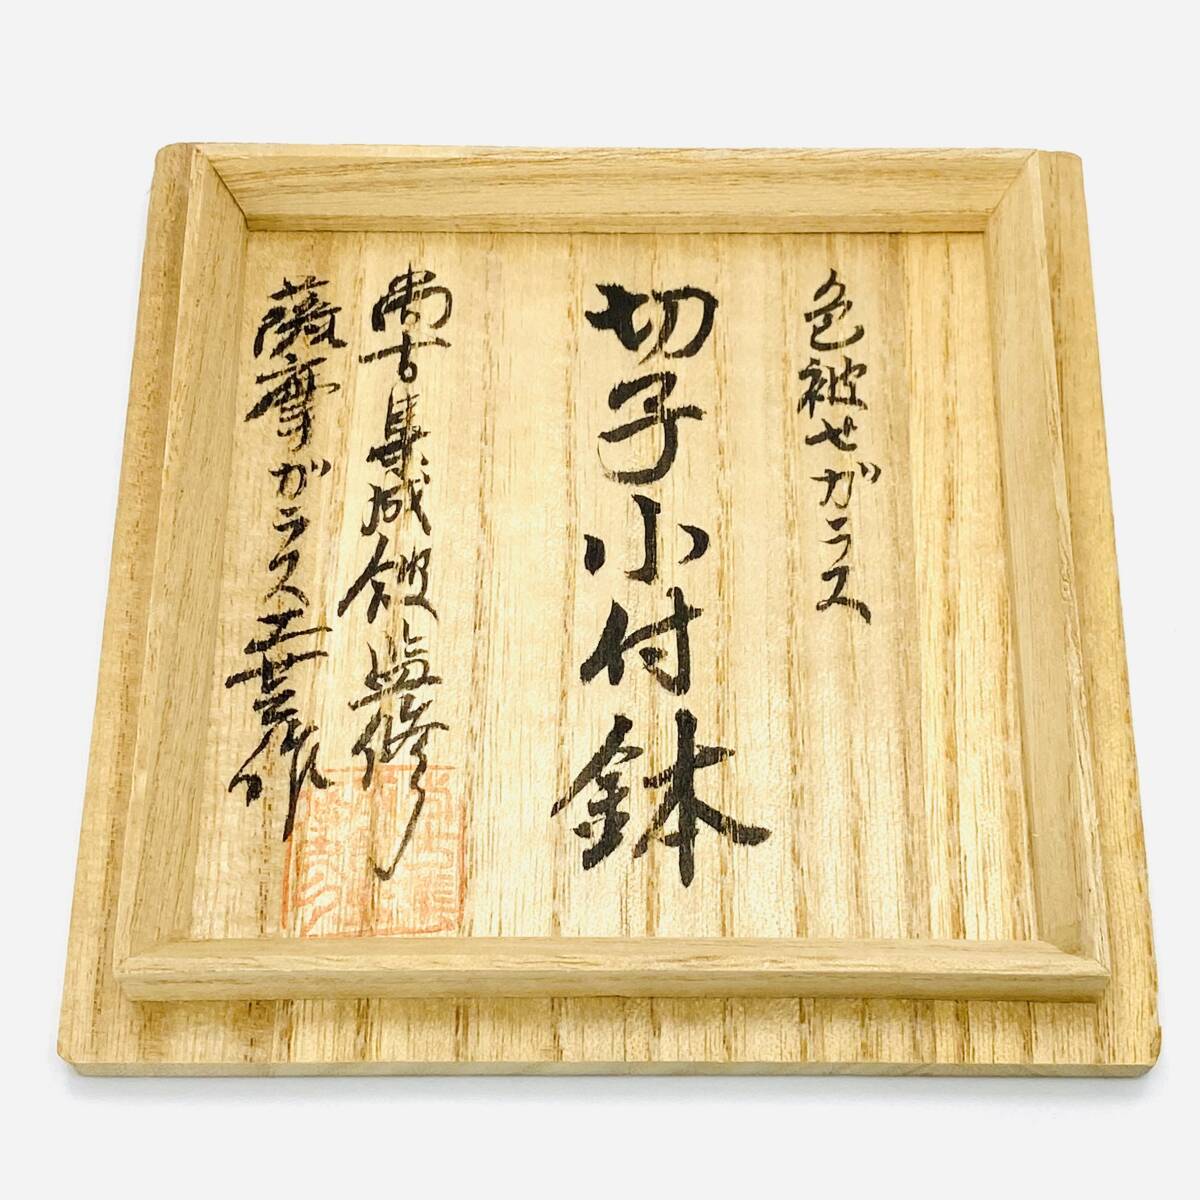 色被せガラス
切子小付鉢
尚古集成館監修
薩摩ガラス工芸作